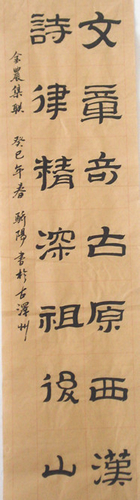 文章奇古原西漢
詩律精深祖後山
金農集聯 癸巳年春 騎陽書於古澤州